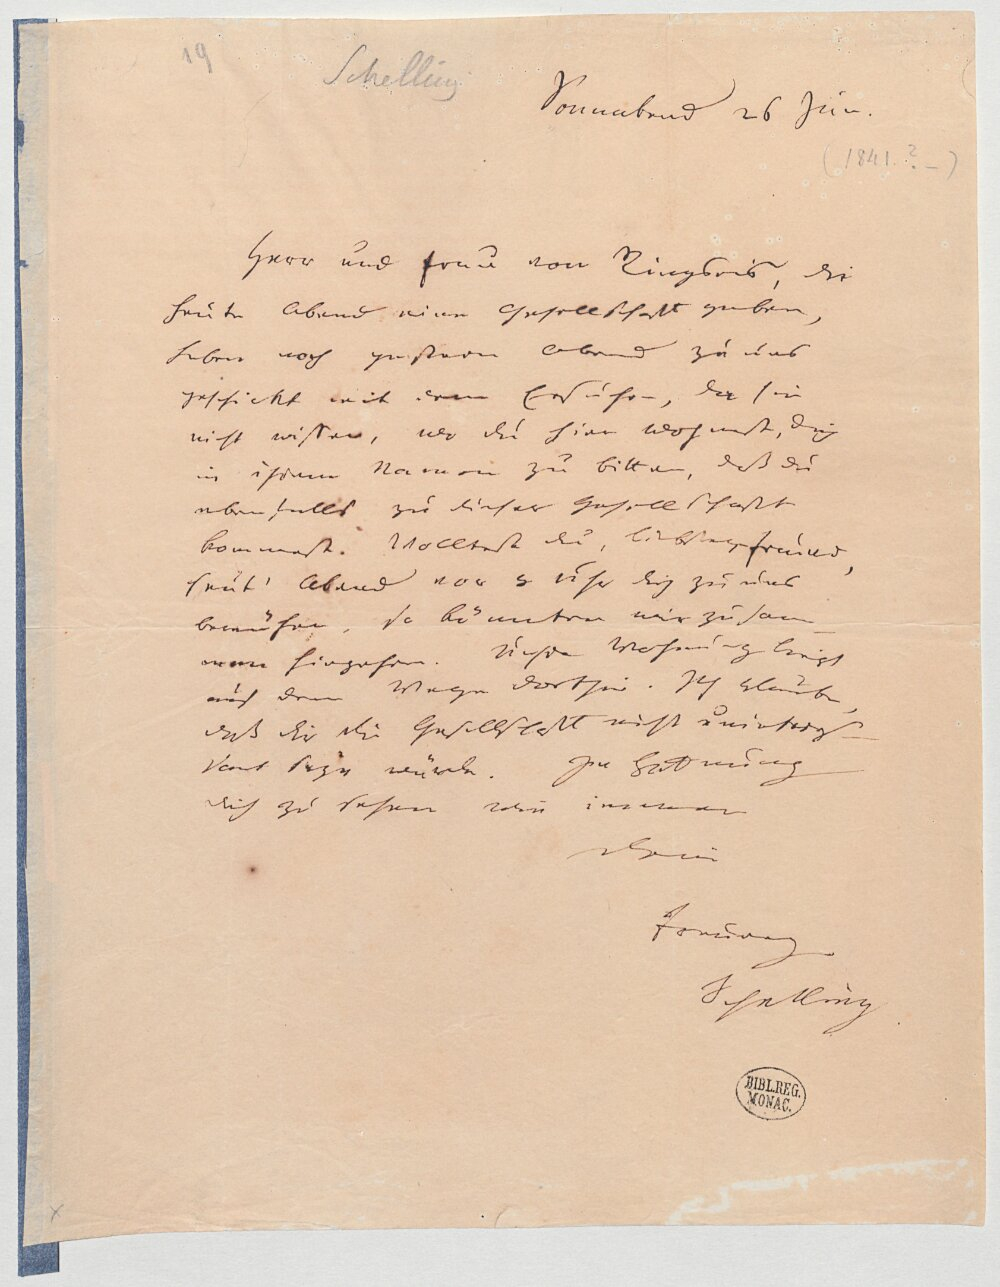 19
Schelling
Sonnabend 26 Jun.
(1841.? –)
Herr und Frau von Ringseis, die
heute Abend eine Gesellschaft geben,
haben noch gestern Abend zu uns
geschickt mit dem Ersuchen, da sie
nicht wissen, wo du hier wohnest, dich
in ihrem Namen zu bitten, daß du
ebenfalls zu dieser Gesellschaft
kommest. Wolltest du, liebster Freund,
heut' Abend vor 8 Uhr dich zu uns
bemühen, so könnten wir zusam
men hingehen. Unsre Wohnung liegt
auf dem Wege dorthin. Ich glaube,
daß dir die Gesellschaft nicht uninteres-
sant seyn würde. In Hoffnung
dich zu sehen wie immer
dein
Schelling
BIBL.REG.
MONAC.
x